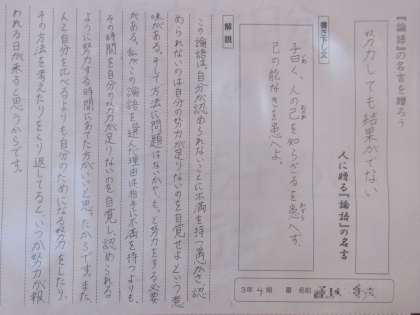 『論語』の名言を贈ろう
努力しても結果がでない
人に贈る『論語』の名言
書き下し文
子曰く、人の己を知らざるを患へず、
己の能無きを患へよ。
3年4組 番 名前
解説
この論語は、自分が認められないことに不満を持つ愚かさ、認
められないのは自分の努力が足りないのを自覚せよという意
味がある。そして方法に問題はないかや、もっと努力をする必要
がある。私がこの論語を選んだ理由は相手に不満を持つよりも、
その時間を自分の努力が足りないのを自覚し、認められる
ように努力する時間にあてた方がいいと思ったからです。また、
人と自分を比べるよりも自分のためになる努力をしたり、
その方法を考えたりくり返してると、いつか努力が報
われる日が来ると思うからです。